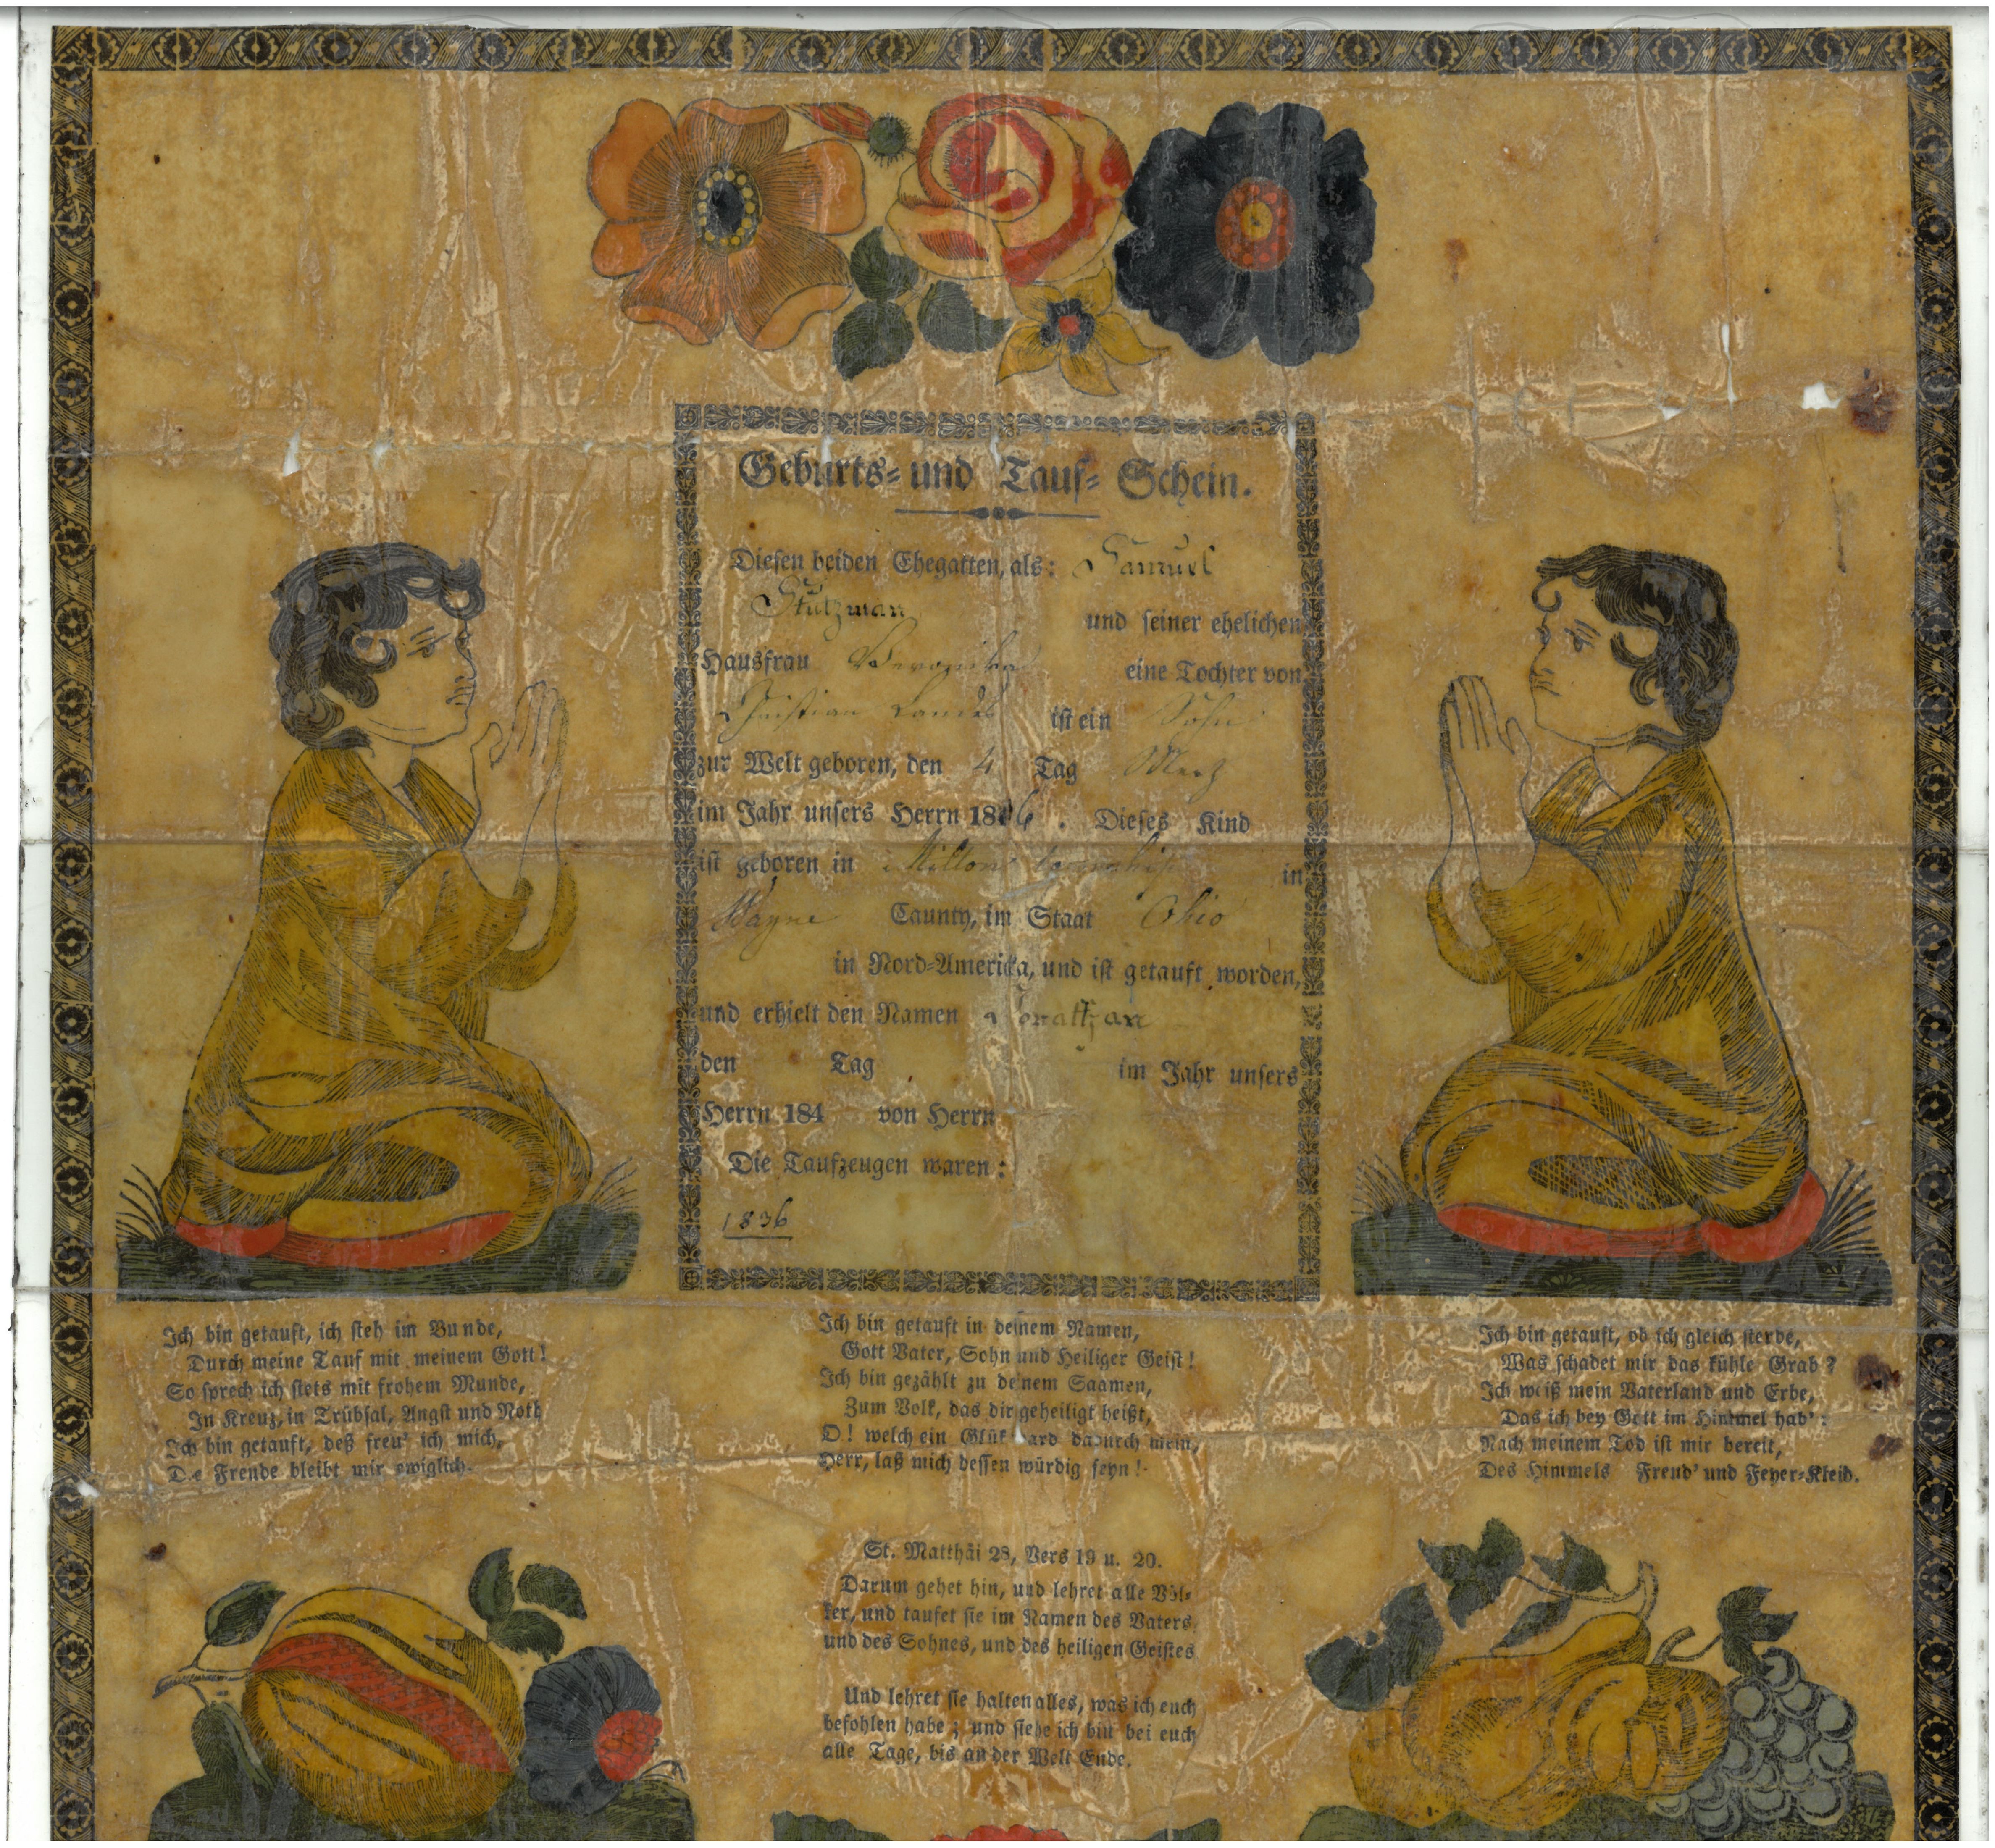 Geburts- und Tauf- Schein.
Diesen beiden Ehegatten, als: Samuel
Stutzman und seiner ehelichen
Hausfrau Veronika eine Tochter von
Christian Landes ist ein Sohn
zur Welt geboren, den 4 Tag Mertz
im Jahr unsers Herrn 18 6. Dieses Kind
ist geboren in Milton township in
Wayne Caunty, im Staat Ohio
in Nord-America, und ist getauft worden,
und erhielt den Namen
den Tag im Jahr unsers
Herrn 184 von Herrn
Die Taufzeugen waren:
1836
Ich bin getauft, ich steh im Bunde,
Durch meine Tauf mit meinem Gott!
So sprech ich stets mit frohem Munde,
In Kreuz, in Trübsal, Angst und Noth
Ich bin getauft, deß freu' ich mich,
Die Freude bleibt mir ewiglich.
Ich bin getauft in deinem Namen,
Gott Vater, Sohn und Heiliger Geist!
Ich bin gezählt zu deinem Saamen,
Zum Volk, das dir geheiligt heißt,
O! welch ein Glük ward dadurch mein,
Herr, laß mich dessen würdig seyn!
Ich bin getauft, ob ich gleich sterbe,
Was schadet mir das kühle Grab?
Ich weiß mein Vaterland und Erbe,
Das ich bey Gott im Himmel hab':
Nach meinem Tod ist mir bereit,
Des Himmels Freud' und Feyer-Kleid.
St. Matthäi 28, Vers 19 u. 20.
Darum gehet hin, und lehret alle Völ-
ker, und taufet sie im Namen des Vaters
und des Sohnes, und des heiligen Geistes
Und lehret sie halten alles, was ich euch
befohlen habe; und siehe ich bin bei euch
alle Tage, bis an der Welt Ende.